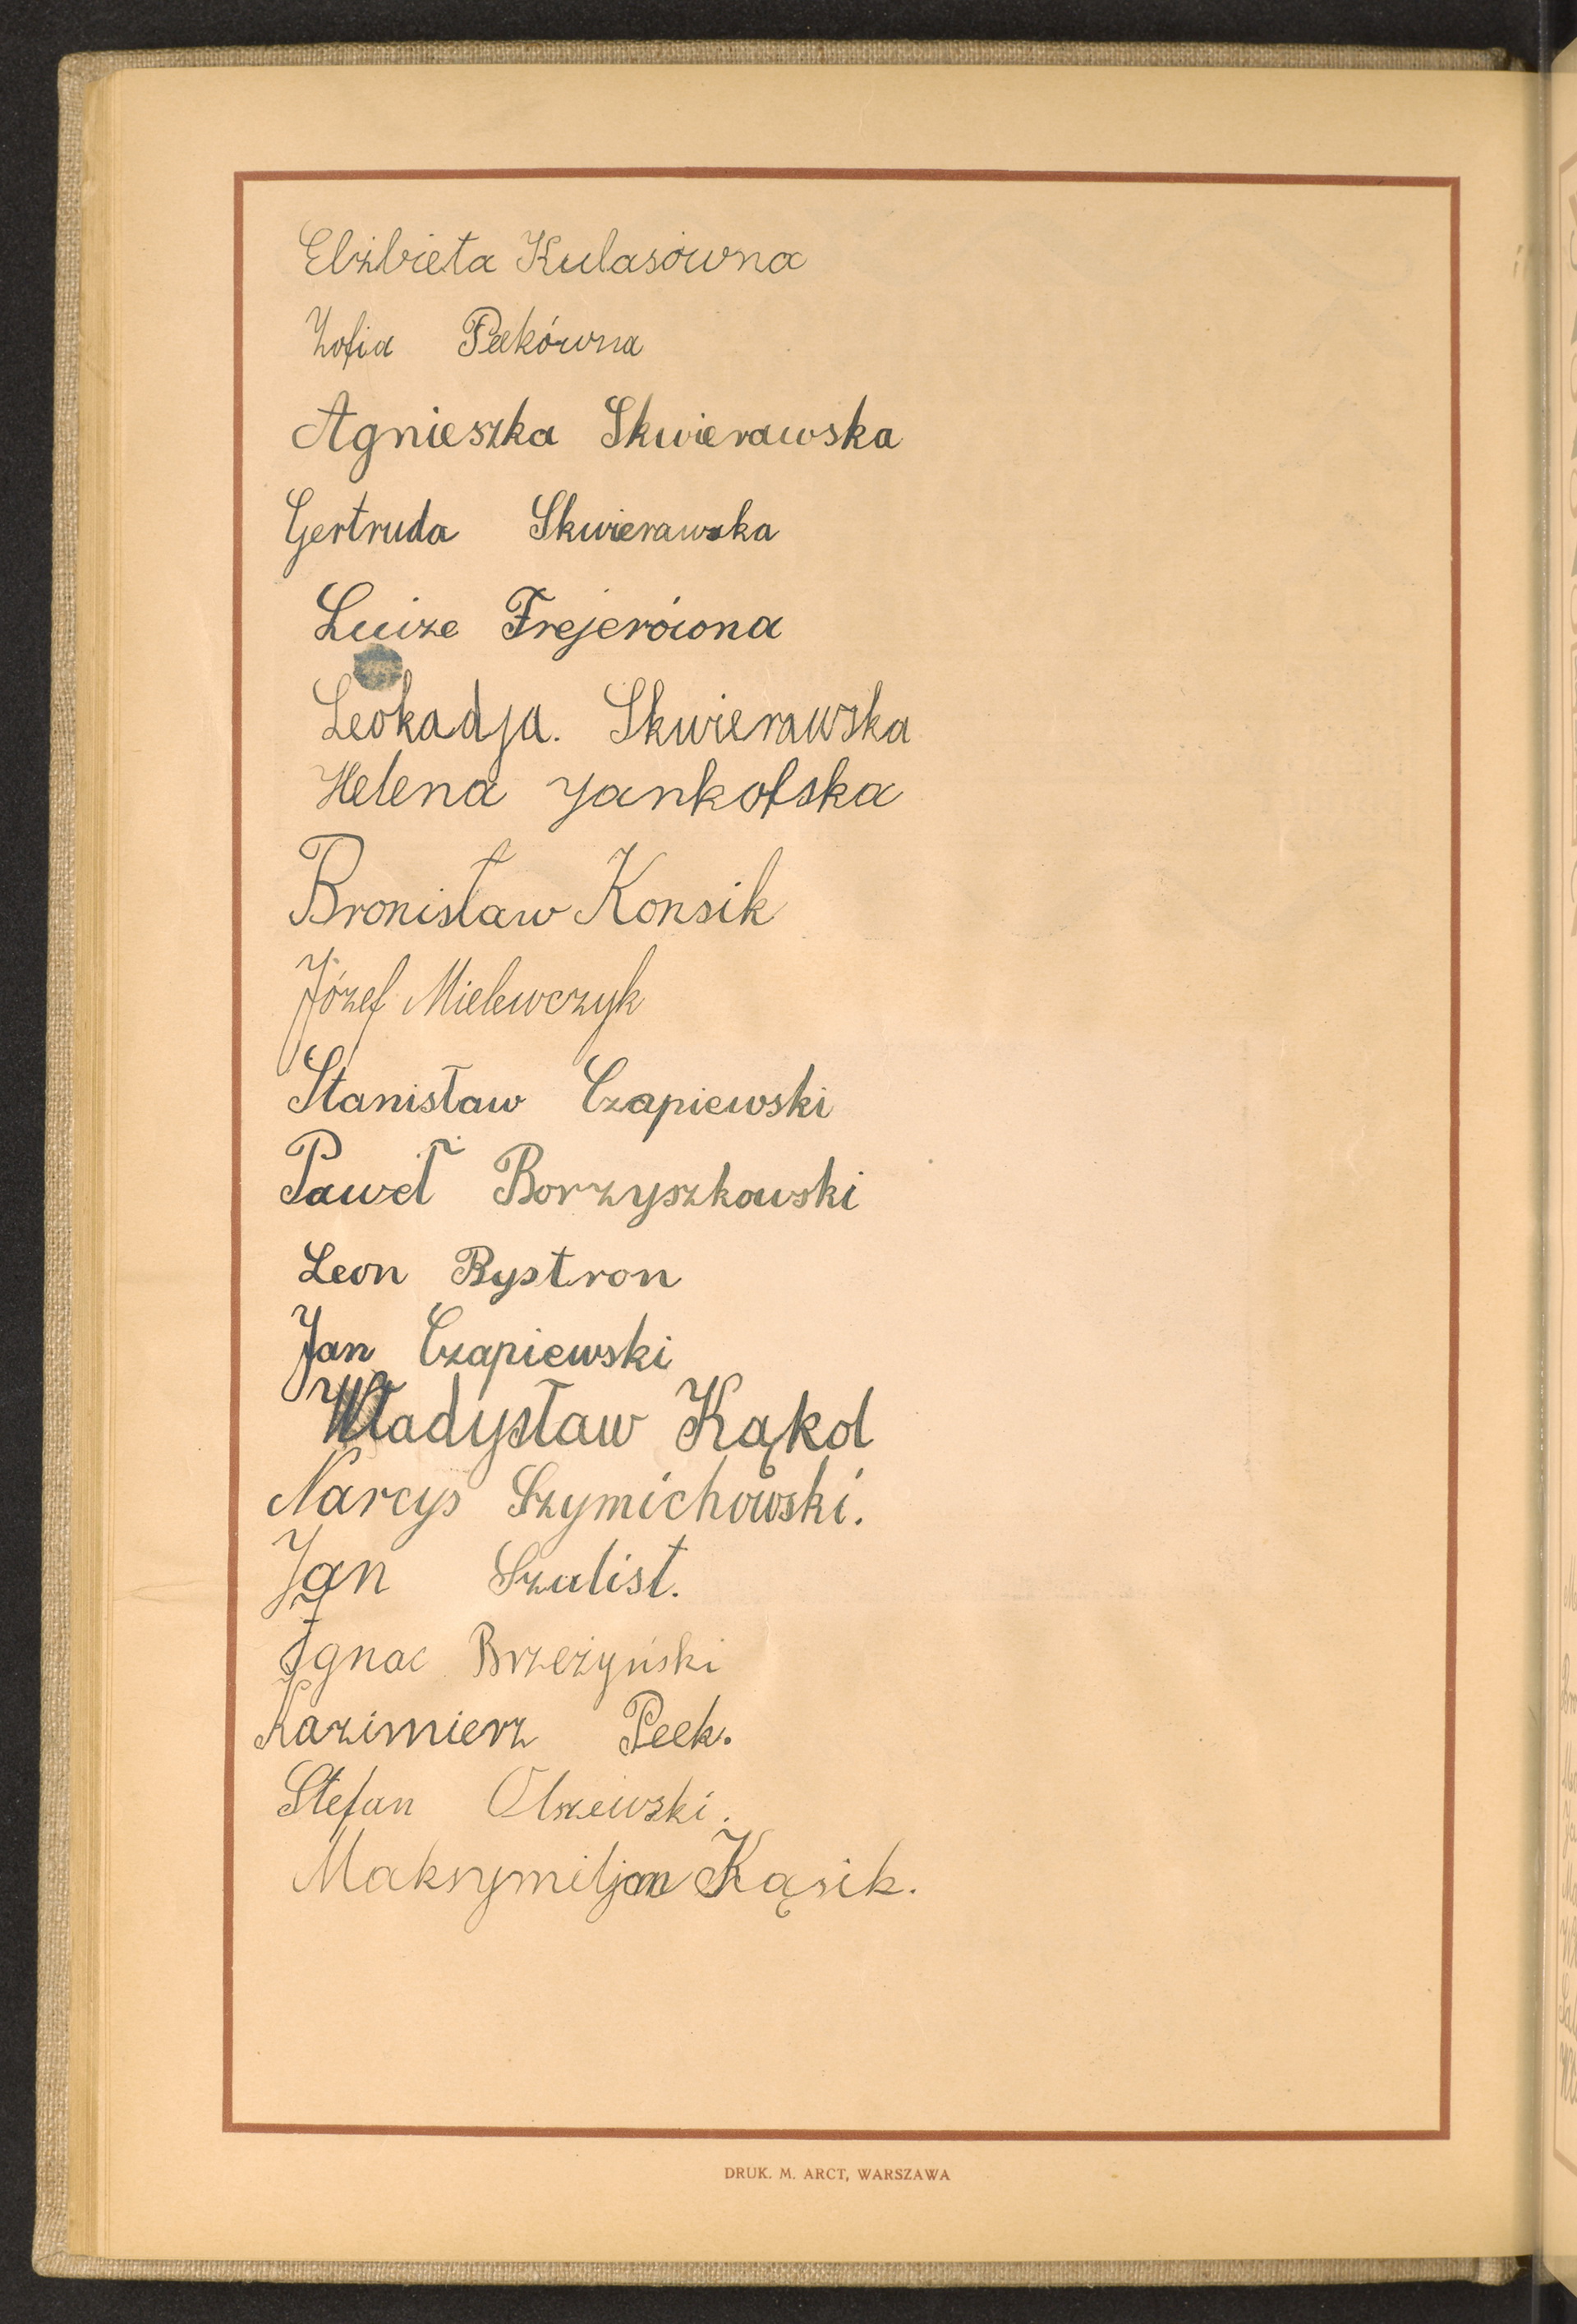 Elżbieta Kulasówna
Zofia Pekówna
Agnieszka Skwierawska
Gertruda Skwierawska
Luize Frejerówna
Leokadja. Skwierawska
Helena Jankofska
Bronisław Konsik
Józef Mielewczyk
Stanisław Czapiewski
Paweł Borzyszkowski
Leon Bystron
Jan Czapiewski
Władysław Kąkol
Narcys Szymichowski.
Jan Szulist.
Ignac Brzeżyński
Kazimierz Peek.
Stefan Olszewski.
Maksymiljan Kąsik.
DRUK. M. ARCT, WARSZAWA